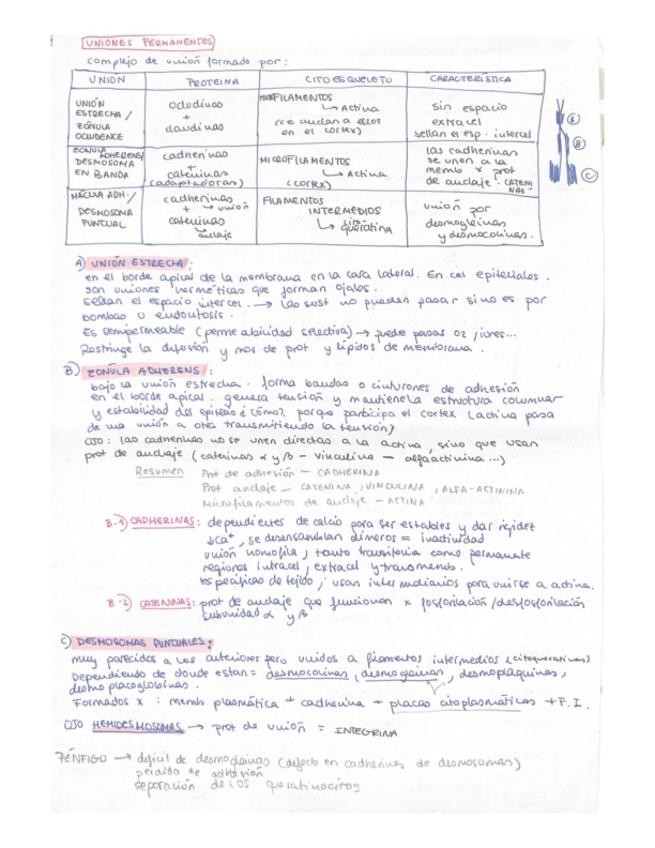 UNIONES PERMANENTES
complejo de unión formado por:
UNIÓN PROTEINA CITOESQUELETO CARACTERÍSTICA
UNIÓN ESTRECHA / ZÓNULA OCLUDENCE
ocludinas + claudinas
MICROFILAMENTOS ↳ Actina (se anclan a ellos en el cortex)
sin espacio extracel sellan el esp. intercel
ZONULA ADHERENS/ DESMOSOMA EN BANDA
cadherinas + cateninas (adaptadoras)
MICROFILAMENTOS ↳ Actina (CORTEX)
las cadherinas se unen a la memb x prot de anclaje. CATENINAS
MÁCULA ADH./ DESMOSOMA PUNTUAL
cadherinas + → unión cateninas ↳ anclaje
FILAMENTOS INTERMEDIOS ↳ citoqueratina
unión por desmogleinas y desmocolinas.
A
B
C
A) UNIÓN ESTRECHA:
en el borde apical de la membrana en la cara lateral. En cel epiteliales.
son uniones herméticas que forman ojales.
sellan el espacio intercel. → las sust no pueden pasar si no es por
bombas o endocitosis.
Es semipermeable (permeabilidad selectiva) → puede pasar O2 / iones...
Restringe la difusión y mos de prot y lípidos de membrana.
B) ZÓNULA ADHERENS:
bajo la unión estrecha. forma bandas o cinturones de adhesión
en el borde apical. genera tensión y mantiene la estructura columnar
y estabilidad del epitelio ¿cómo? porque participa el cortex (actina pasa
de una unión a otra transmitiendo la tensión)
OJO: las cadherinas no se unen directas a la actina, sino que usan
prot de anclaje (cateninas α y β – vinculina – alfaactinina ...)
Resumen Prot de adhesión – CADHERINA
Prot anclaje – CATENINA, VINCULINA, ALFA-ACTININA
Microfilamentos de anclaje – ACTINA
B.1) CADHERINAS: dependientes de calcio para ser estables y dar rigidez
↓Ca⁺, se desensamblan dímeros = inactividad
unión homofila, tanto transitoria como permanente
regiones intracel, extracel y transmemb.
específicas de tejido, usan intermediarios para unirse a actina.
B.2) CATENINAS: prot de anclaje que funcionan x fosforilación/desfosforilación
subunidad α y β
C) DESMOSOMAS PUNTUALES:
muy parecidos a los anteriores pero unidos a filamentos intermedios (citoqueratinas)
Dependiendo de donde estan = desmocolinas, desmogleinas, desmoplaquinas,
desmo placoglobinas.
Formados x : memb plasmática + cadherina + placas citoplasmáticas + F.I.
OJO HEMIDESMOSOMAS → prot de unión = INTEGRINA
PÉNFIGO → déficit de desmogleinas (defecto en cadherinas de desmosomas)
perdida de adhesión
separación de los queratinocitos